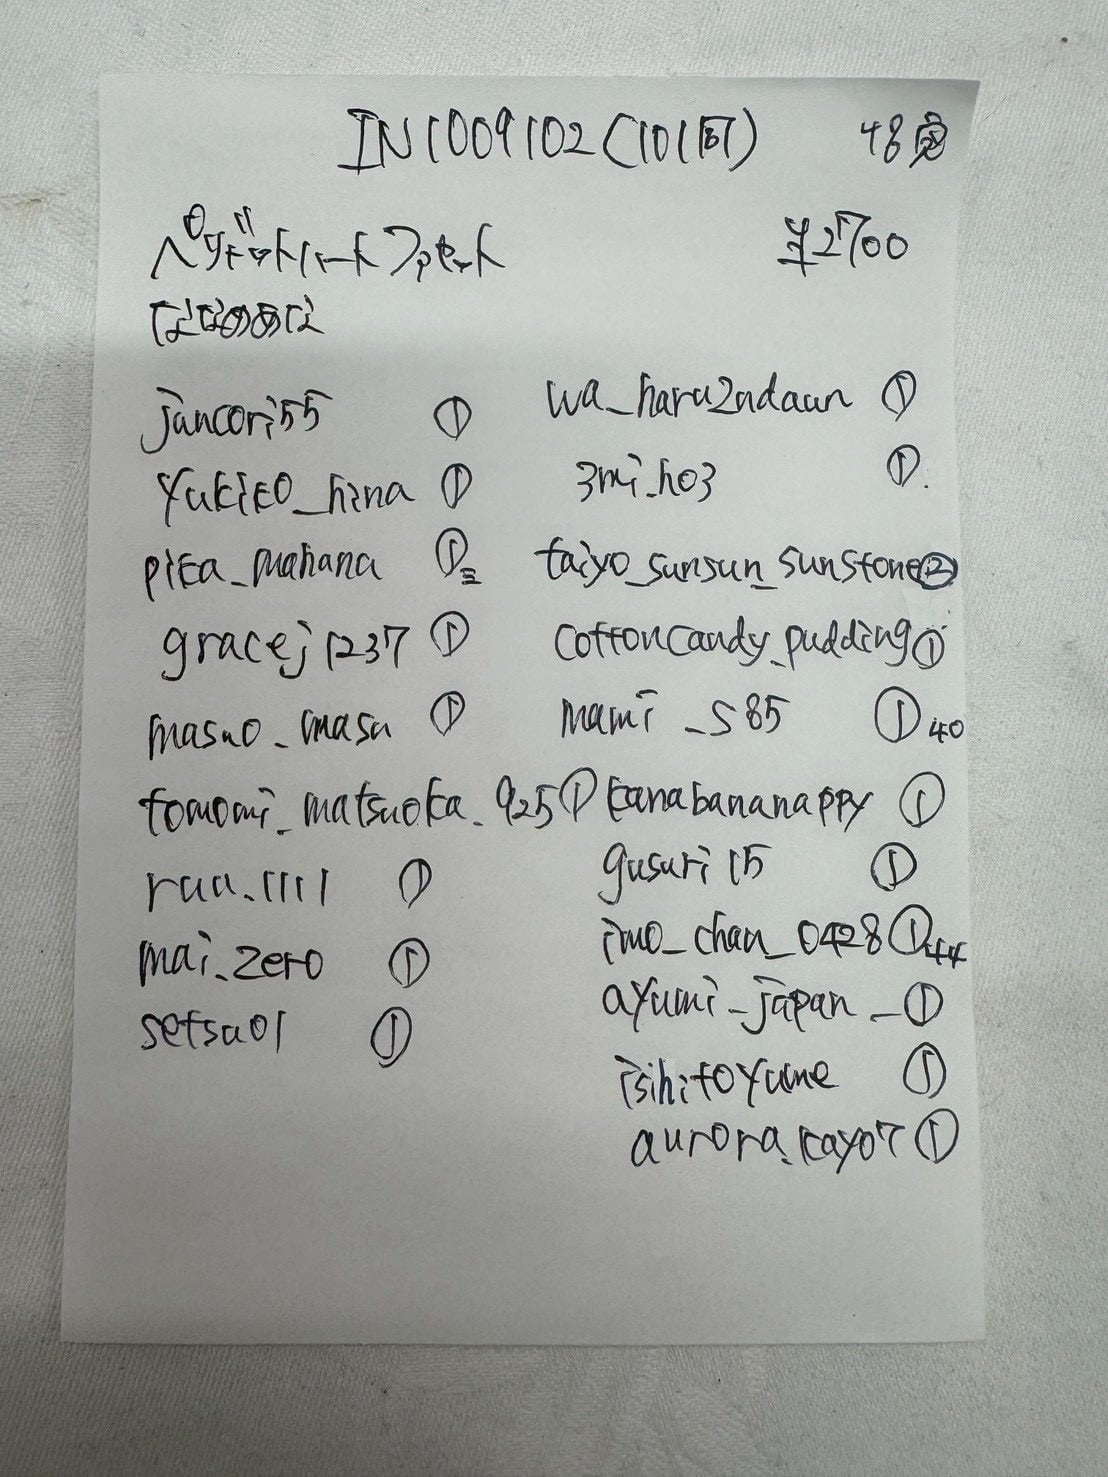 IN1009102(101回) 48定
ペリドットハートファセット ¥2700
ななめあな
jancori55 ①
yukiko_hina ①
pika_mahana ①三
gracej1237 ①
masuo_masa ①
tomomi_matsuoka_925 ①
ruu.1111 ①
mai.zero ①
setsu01 ①
wa_haru2ndaun ①
3mi.ho3 ①
taiyo_sunsun_sunstone ②
cottoncandy_pudding ①
mami_s85 ① 40
kanabananappy ①
gusuri15 ①
imo_chan_0428 ① 44
ayumi_japan_ ①
isihitoyume ①
aurora.kayo7 ①